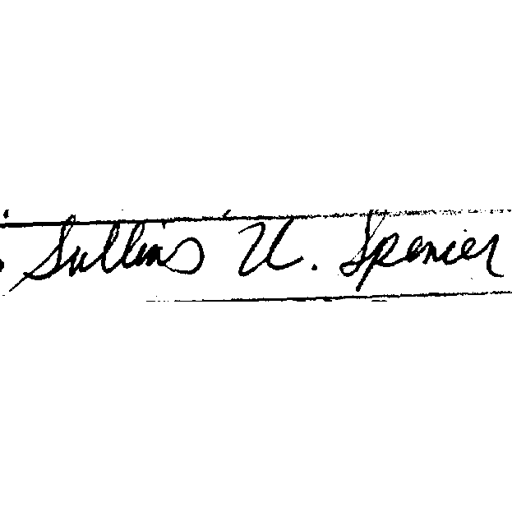 Sullins U. Spenier